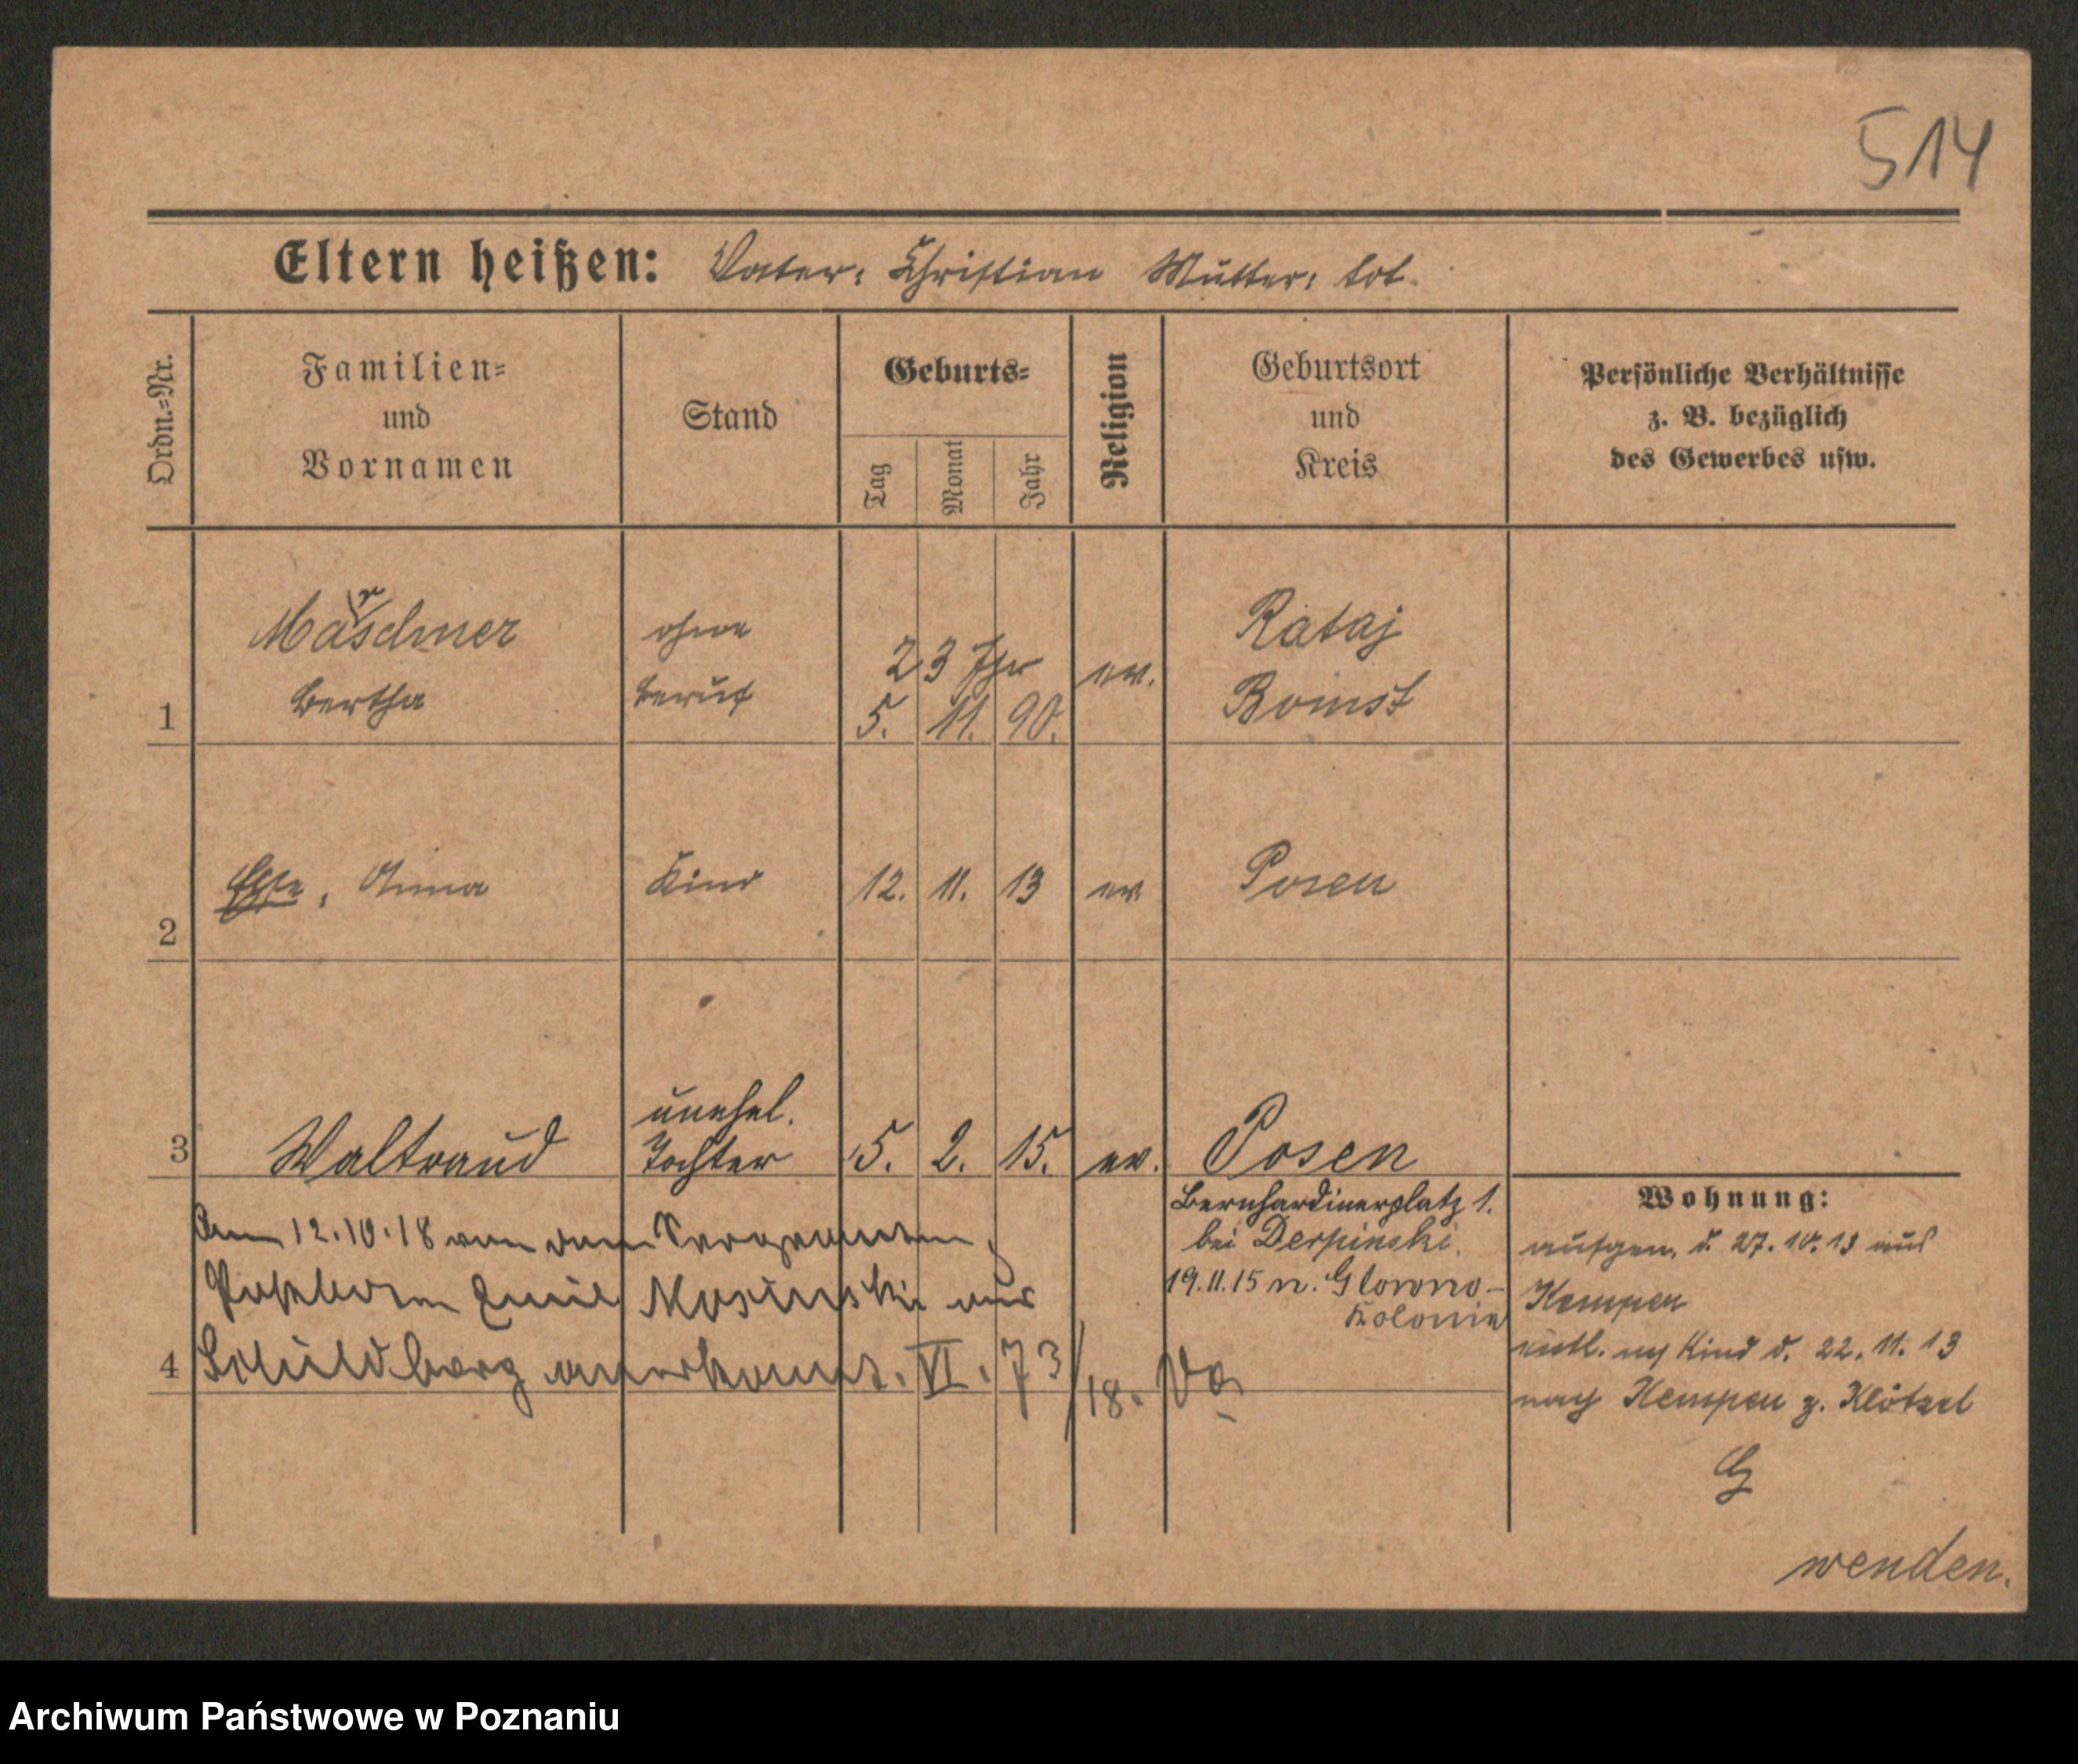 514
Eltern heißen: Vater: Christian Mutter: tot.
Ordn.=Nr.
Familien=
und
Vornamen
Stand
Geburts=
Tag
Monat
Jahr
Religion
Geburtsort
und
Kreis
Persönliche Verhältnisse
z. B. bezüglich
des Gewerbes usw.
r
Mäschner
Bertha
ohne
Beruf
23 Jhr
5. 11. 90.
ev.
Rataj
Bomst
1
Else, Anna
Kind
12. 11. 13
ev.
Posen
2
unehel.
3 Waltraud Tochter 5. 2. 15. ev. Posen
Am 12.10.18 von dem
Emil Mosinski aus
4 Schildberg anerkannt. VI. 73/18.
Bernhardinerplatz 1.
bei Derpinski.
19.11.15 n. Glowno-
Kolonie
Wohnung:
aufgen. d. 27.10.13 aus
Kempen
entl. m Kind d. 22.11.13
nach Kempen z. Klötzel
wenden.
Archiwum Państwowe w Poznaniu